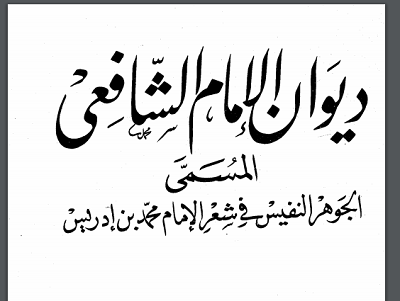 دِيوَان الإِمَام الشَّافِعِي
المُسَمَّى
الجَوهَر النفيس في شِعْرِ الإمام محمّد بن إدريس